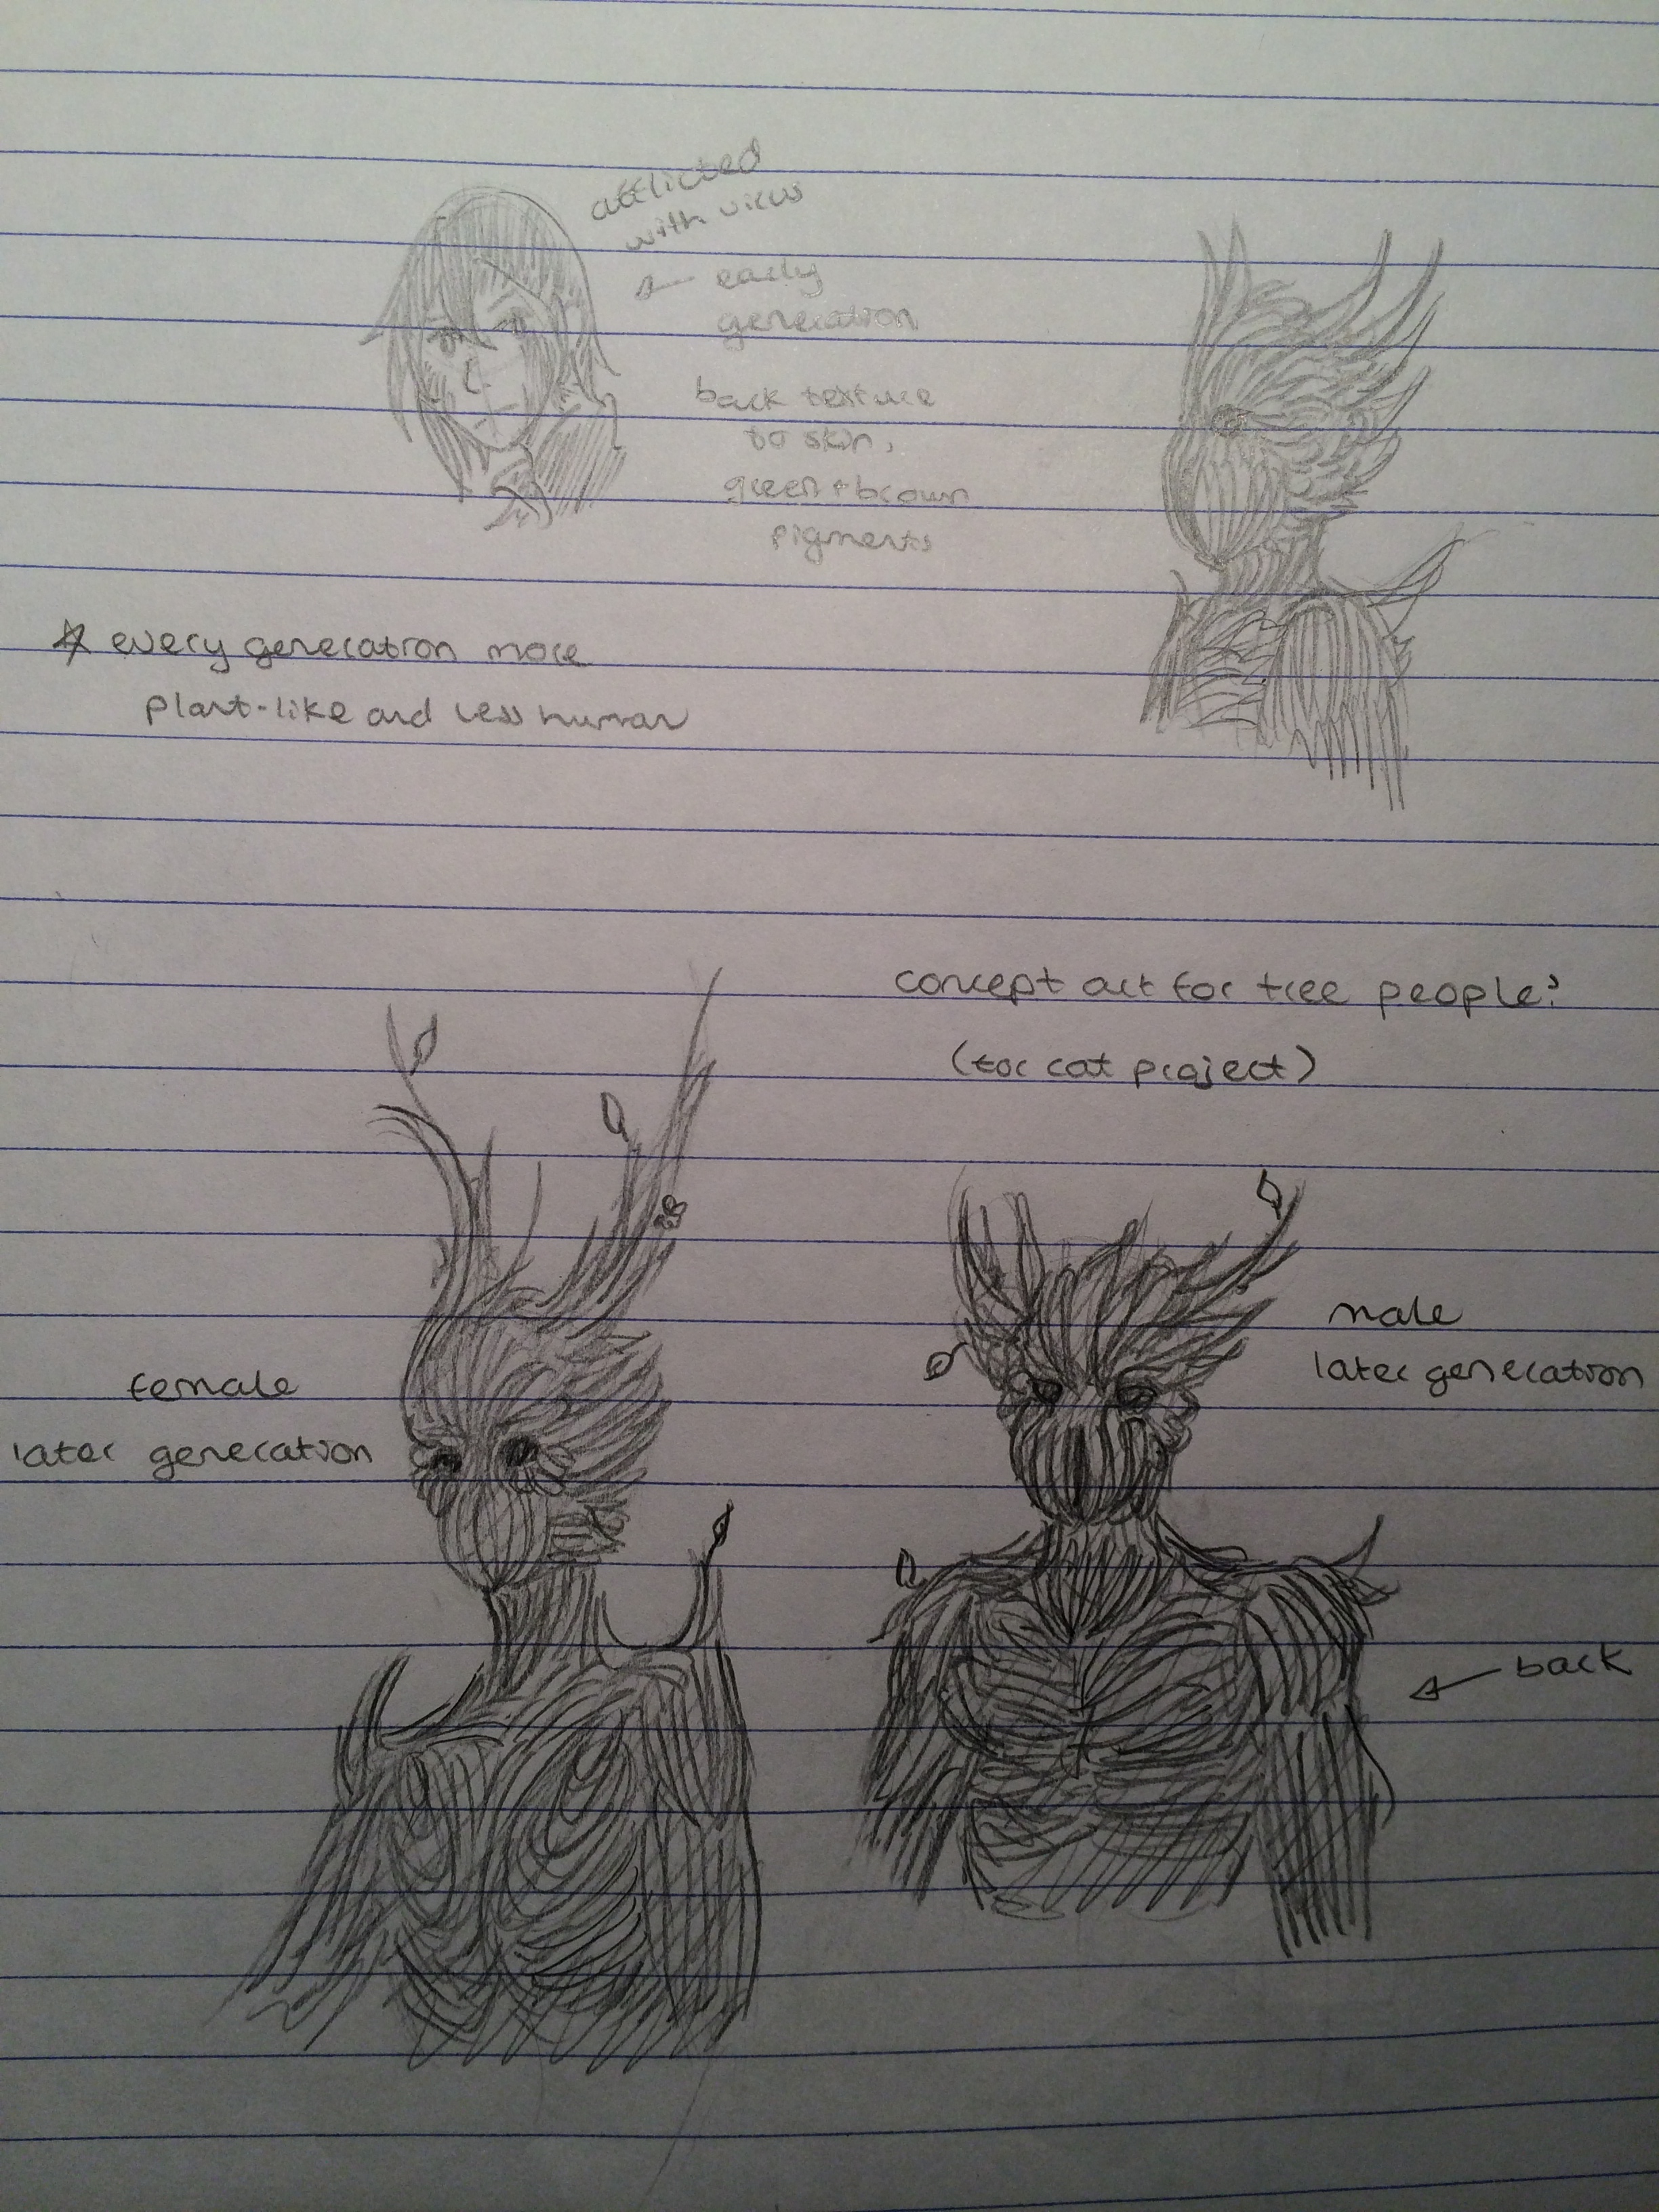 afflicted
with virus
early
generation
bark texture
to skin,
green + brown
pigments
☆ every generation more
plant-like and less human
concept art for tree people?
(for cat project)
male
later generation
female
later generation
bark